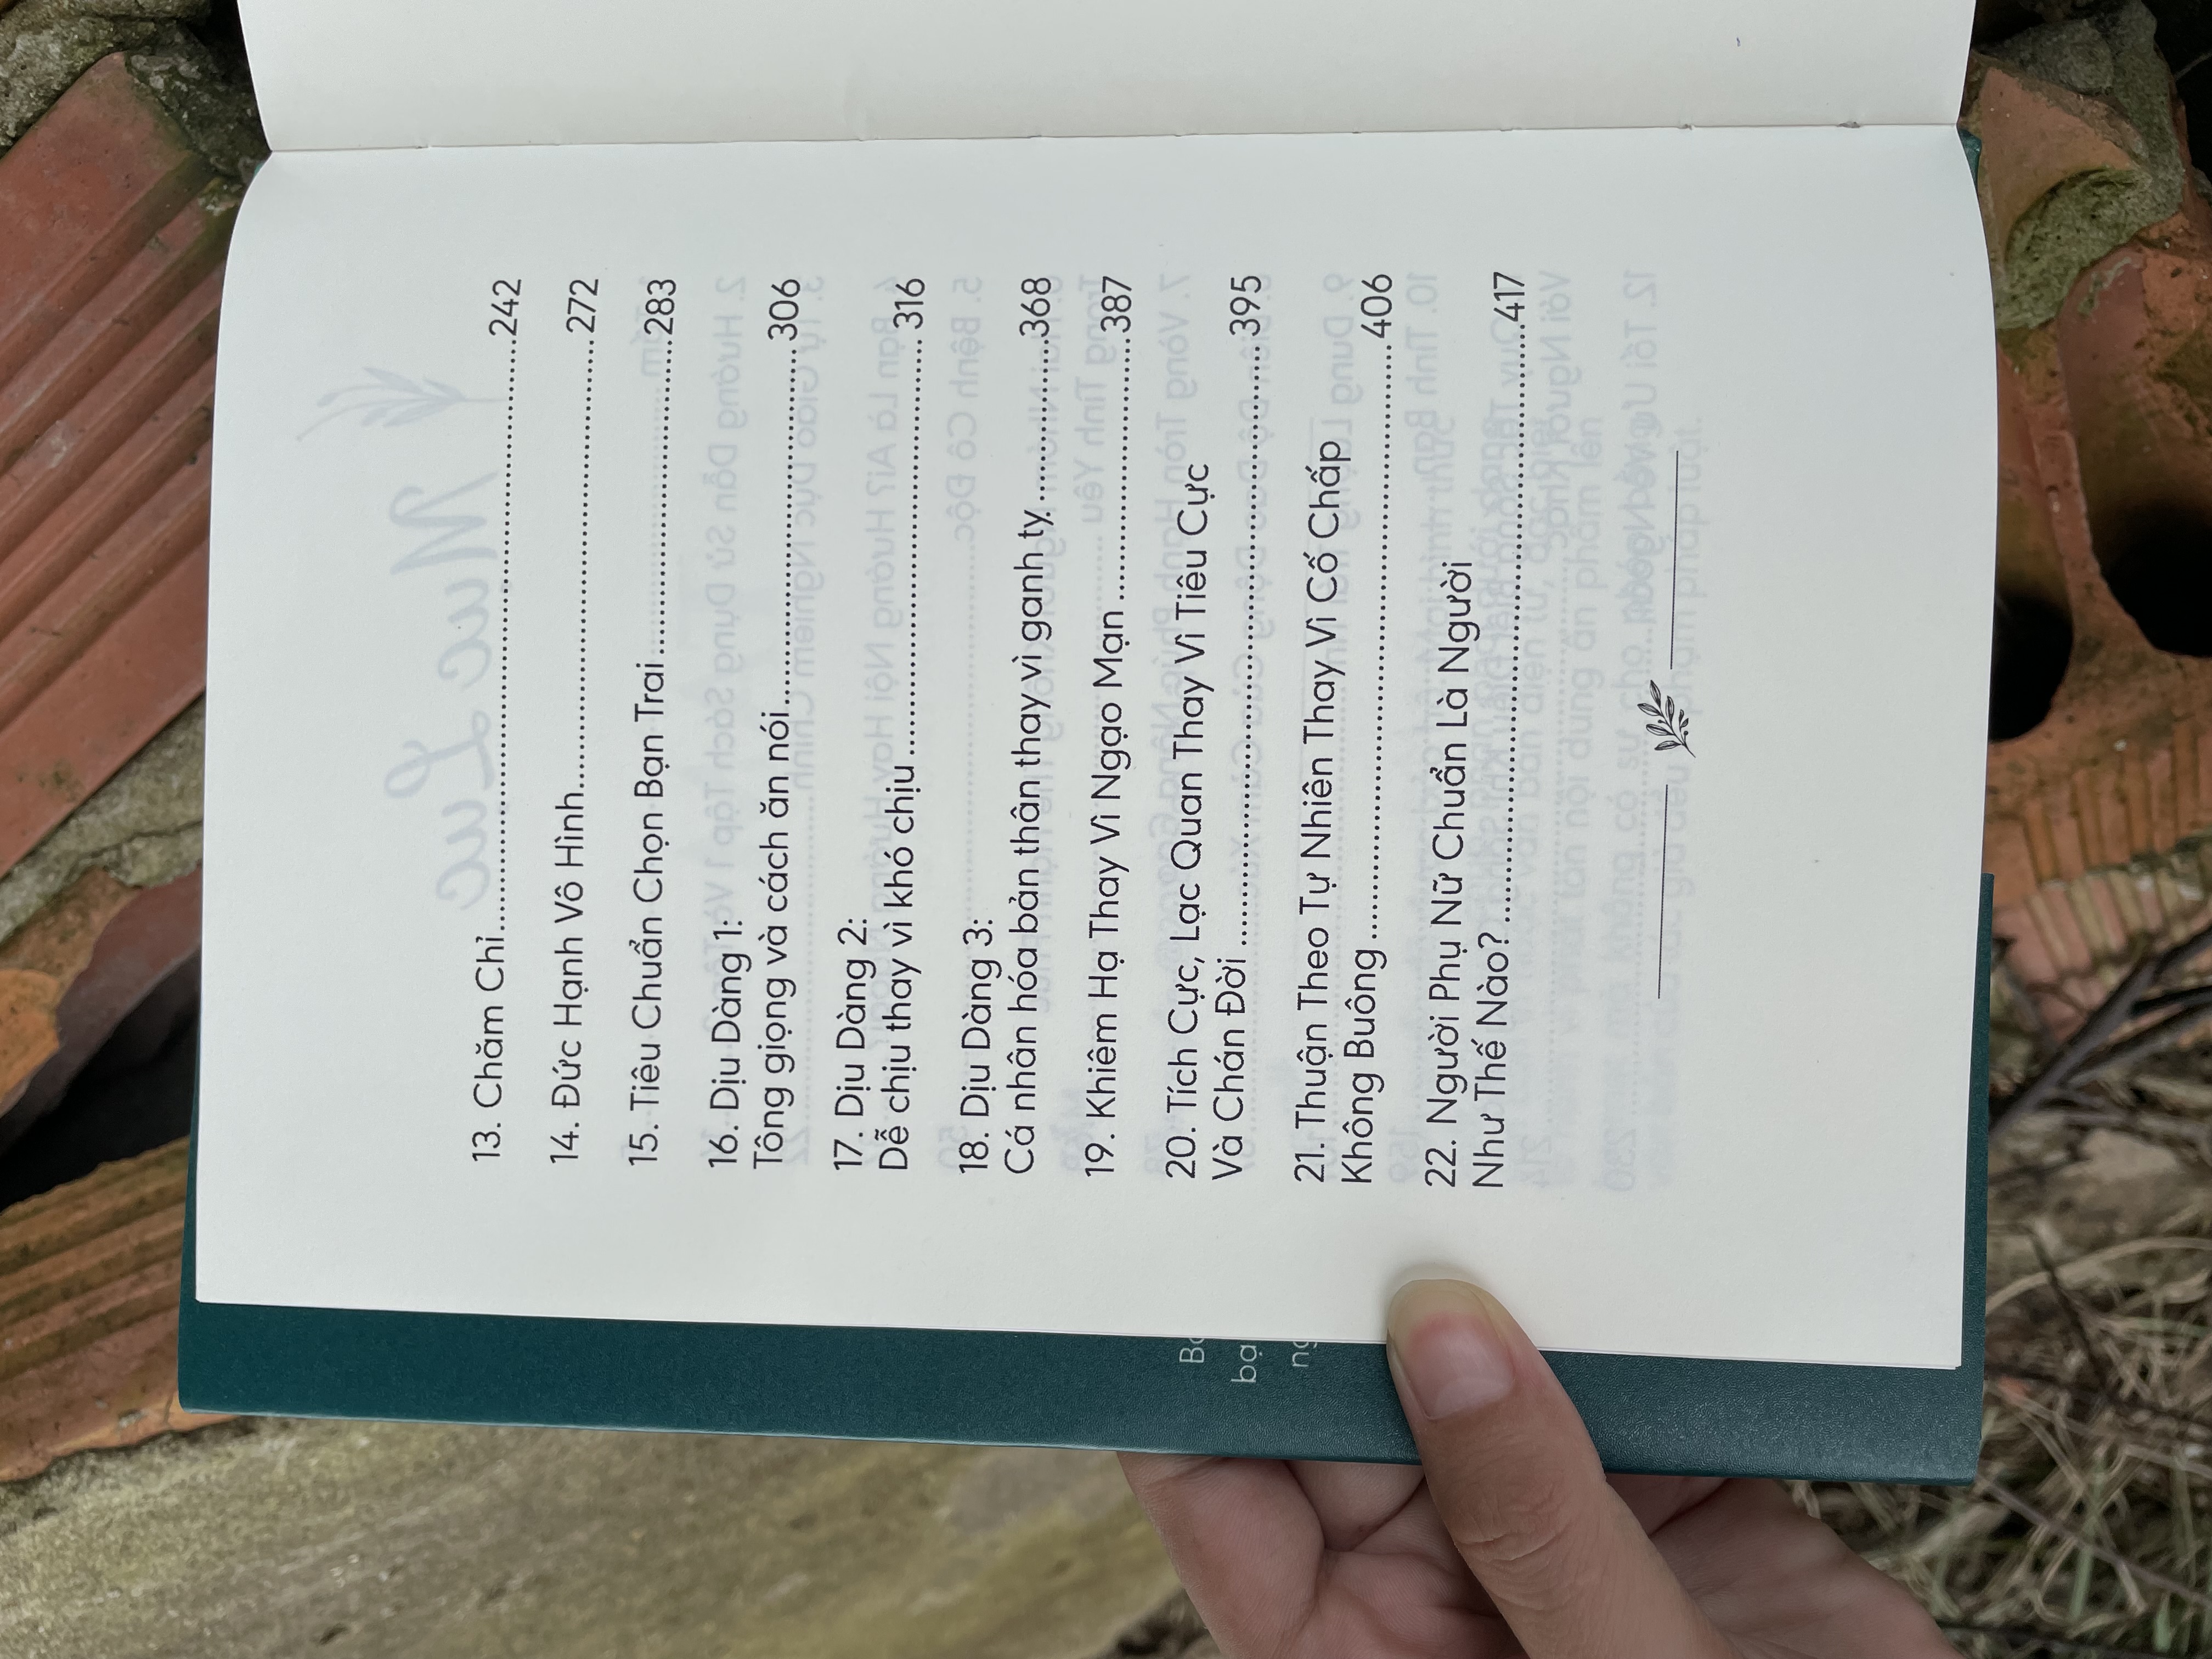 13. Chăm Chỉ........................................242
14. Đức Hạnh Vô Hình........................................272
15. Tiêu Chuẩn Chọn Bạn Trai........................................283
16. Dịu Dàng 1:
Tông giọng và cách ăn nói........................................306
17. Dịu Dàng 2:
Dễ chịu thay vì khó chịu........................................316
18. Dịu Dàng 3:
Cá nhân hóa bản thân thay vì ganh tỵ....................368
19. Khiêm Hạ Thay Vì Ngạo Mạn..............................387
20. Tích Cực, Lạc Quan Thay Vì Tiêu Cực
Và Chán Đời........................................395
21. Thuận Theo Tự Nhiên Thay Vì Cố Chấp
Không Buông........................................406
22. Người Phụ Nữ Chuẩn Là Người
Như Thế Nào?........................................417